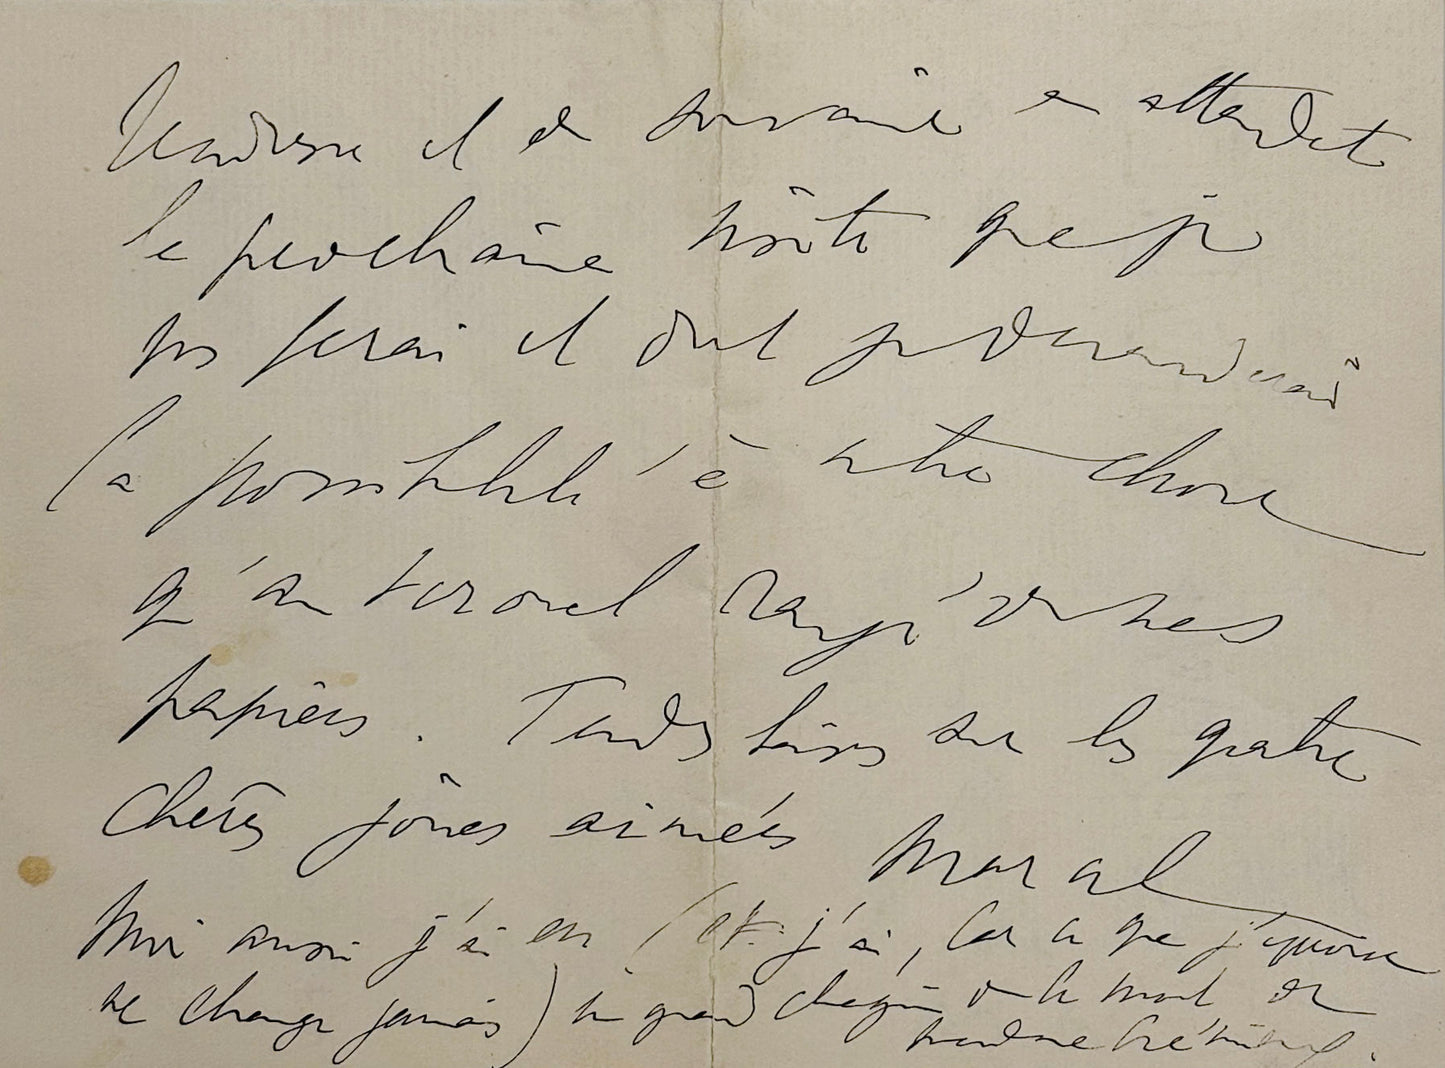 tendresse et de souvenir en attendant
la prochaine visite que je
vs ferai et dont je demanderai
(la possibilité à autre chose
qu'au tarot
papiers. Tendres baisers sur les quatre
chères joues aimées
Marcel
Moi aussi j'ai eu (et j'ai, car ce que j'éprouve
ne change jamais) un grand chagrin de la mort de
Madame